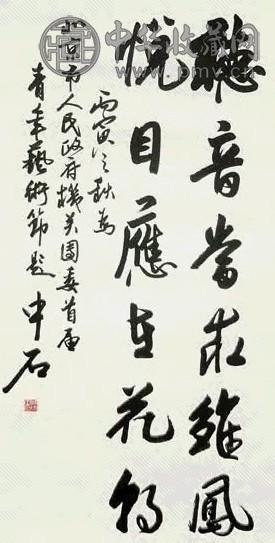 中华收藏网
www.pmv.cn
聽音當求雛鳳
悦目應在花朝
丙寅之秋為
北京市人民政府機关團委首届
青年藝術節題 中石